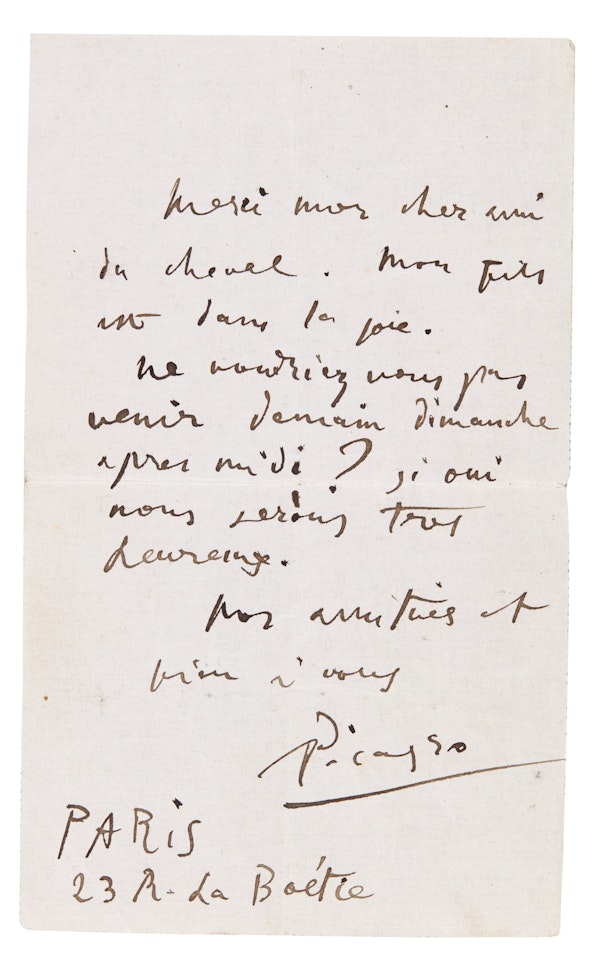 Merci mon cher ami
du cheval. Mon fils
est dans la joie.
ne voudriez vous pas
venir demain dimanche
apres midi ? si oui
nous serons tres
heureux.
Nos amitiés et
bien à vous
Picasso
PARIS
23 R. La Boétie